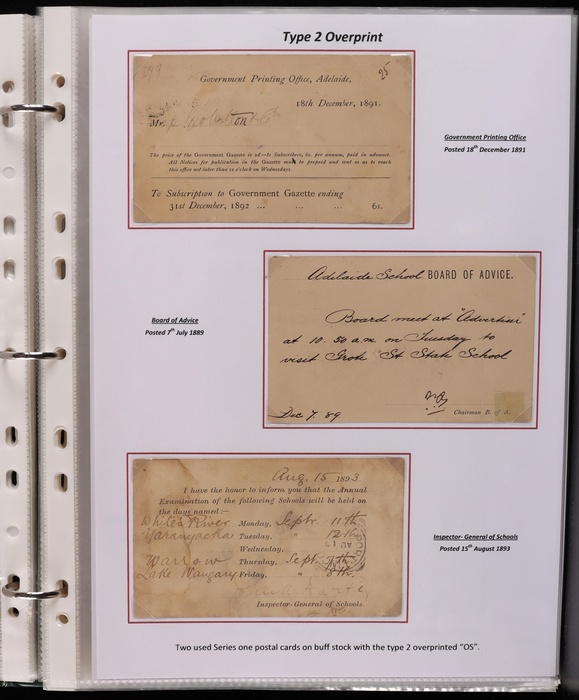 Type 2 Overprint
25
Government Printing Office, Adelaide,
18th December, 1891.
Mr.
The price of the Government Gazette is 2d.—to Subscribers, 6s. per annum, paid in advance.
All Notices for publication in the Gazette must be prepaid and sent so as to reach
this office not later than 12 o'clock on Wednesdays.
To Subscription to Government Gazette ending
31st December, 1892 ... ... ... 6s.
Government Printing Office
Posted 18th December 1891
Adelaide School BOARD OF ADVICE.
Board meet at "Advertiser"
at 10. 50 a.m. on Tuesday to
visit Grote St State School
Dec 7. 89
Chairman B. of A.
Board of Advice
Posted 7th July 1889
Aug. 15 1893.
I have the honor to inform you that the Annual
Examination of the following Schools will be held on
the days named:—
White's River Monday, Septr. 11th
Yaranyacka Tuesday, " 12th
Wednesday,
Warrow Thursday, Sept. 7th
Lake Wangary Friday, " 8th.
Inspector-General of Schools.
Inspector- General of Schools
Posted 15th August 1893
Two used Series one postal cards on buff stock with the type 2 overprinted "OS".